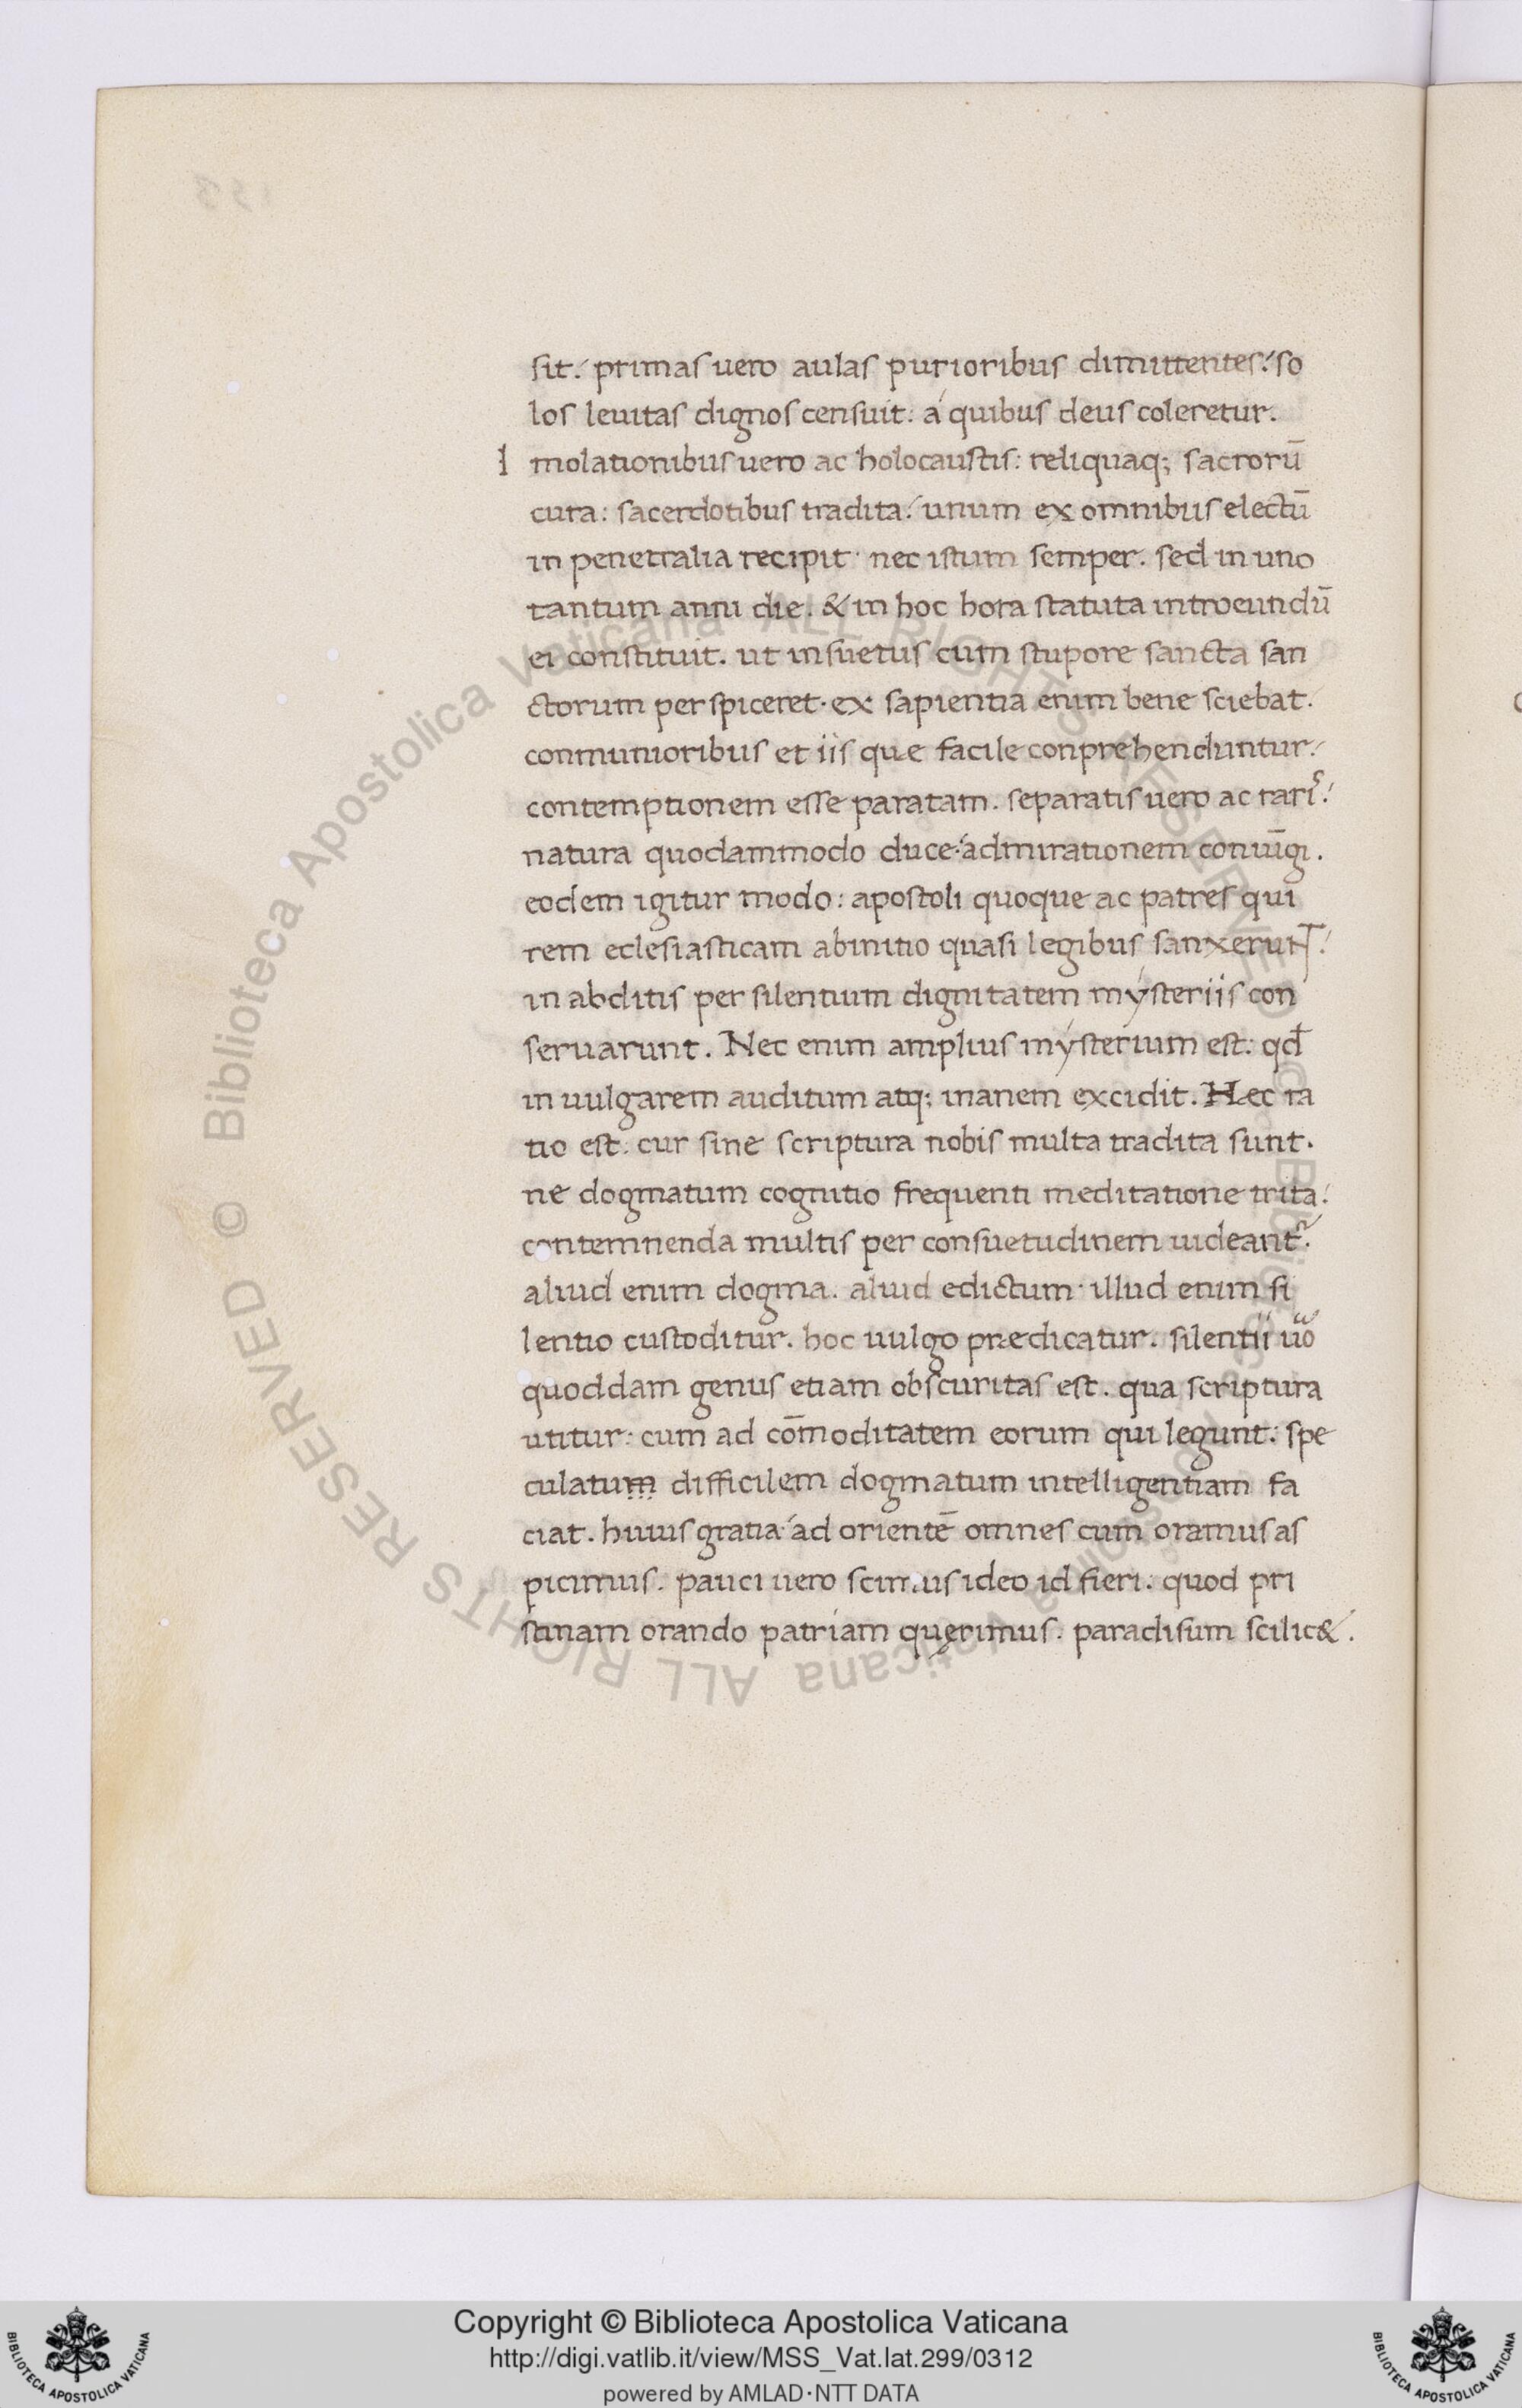 sit. primas uero aulas purioribus dimittentes. so
los leuitas dignos censuit: a quibus deus coleretur.
I molationibus uero ac holocaustis: reliquaq; sacrorū
cura: sacerdotibus tradita. unum ex omnibus electū
in penetralia recipit· nec istum semper. sed in uno
tantum anni die. & in hoc hora statuta introeundū
ei constituit. ut insuetus cum stupore sancta san
ctorum perspiceret· ex sapientia enim bene sciebat.
conmunioribus et iis que facile conprehenduntur.
contemptionem esse paratam. separatis uero ac raris.
natura quodammodo duce· admirationem coniūgi.
eodem igitur modo: apostoli quoque ac patres qui
rem eclesiasticam abinitio quasi legibus sanxerunt.
in abditis per silentium dignitatem mysteriis con
seruarunt. Nec enim amplius mysterium est: qđ
in uulgarem auditum atq; inanem excidit. Hec ra
tio est. cur sine scriptura nobis multa tradita sunt.
ne dogmatum cognitio frequenti meditatione trita.
contemnenda multis per consuetudinem uideant᷑.
aliud enim dogma. aliud edictum· illud enim si
lentio custoditur. hoc uulgo prædicatur. silentii uo
quoddam genus etiam obscuritas est. qua scriptura
utitur: cum ad cōmoditatem eorum qui legunt: spe
culatum difficilem dogmatum intelligentiam fa
ciat. huius gratia· ad orientē omnes cum oramus as
picimus. pauci uero scimus ideo id fieri. quod pri
stinam orando patriam quęrimus. paradisum scilic&.
Copyright © Biblioteca Apostolica Vaticana
http://digi.vatlib.it/view/MSS_Vat.lat.299/0312
powered by AMLAD·NTT DATA
BIBLIOTECA APOSTOLICA VATICANA
BIBLIOTECA APOSTOLICA VATICANA
© Biblioteca Apostolica Vaticana ALL RIGHTS RESERVED © Biblioteca Apostolica Vaticana ALL RIGHTS RESERVED